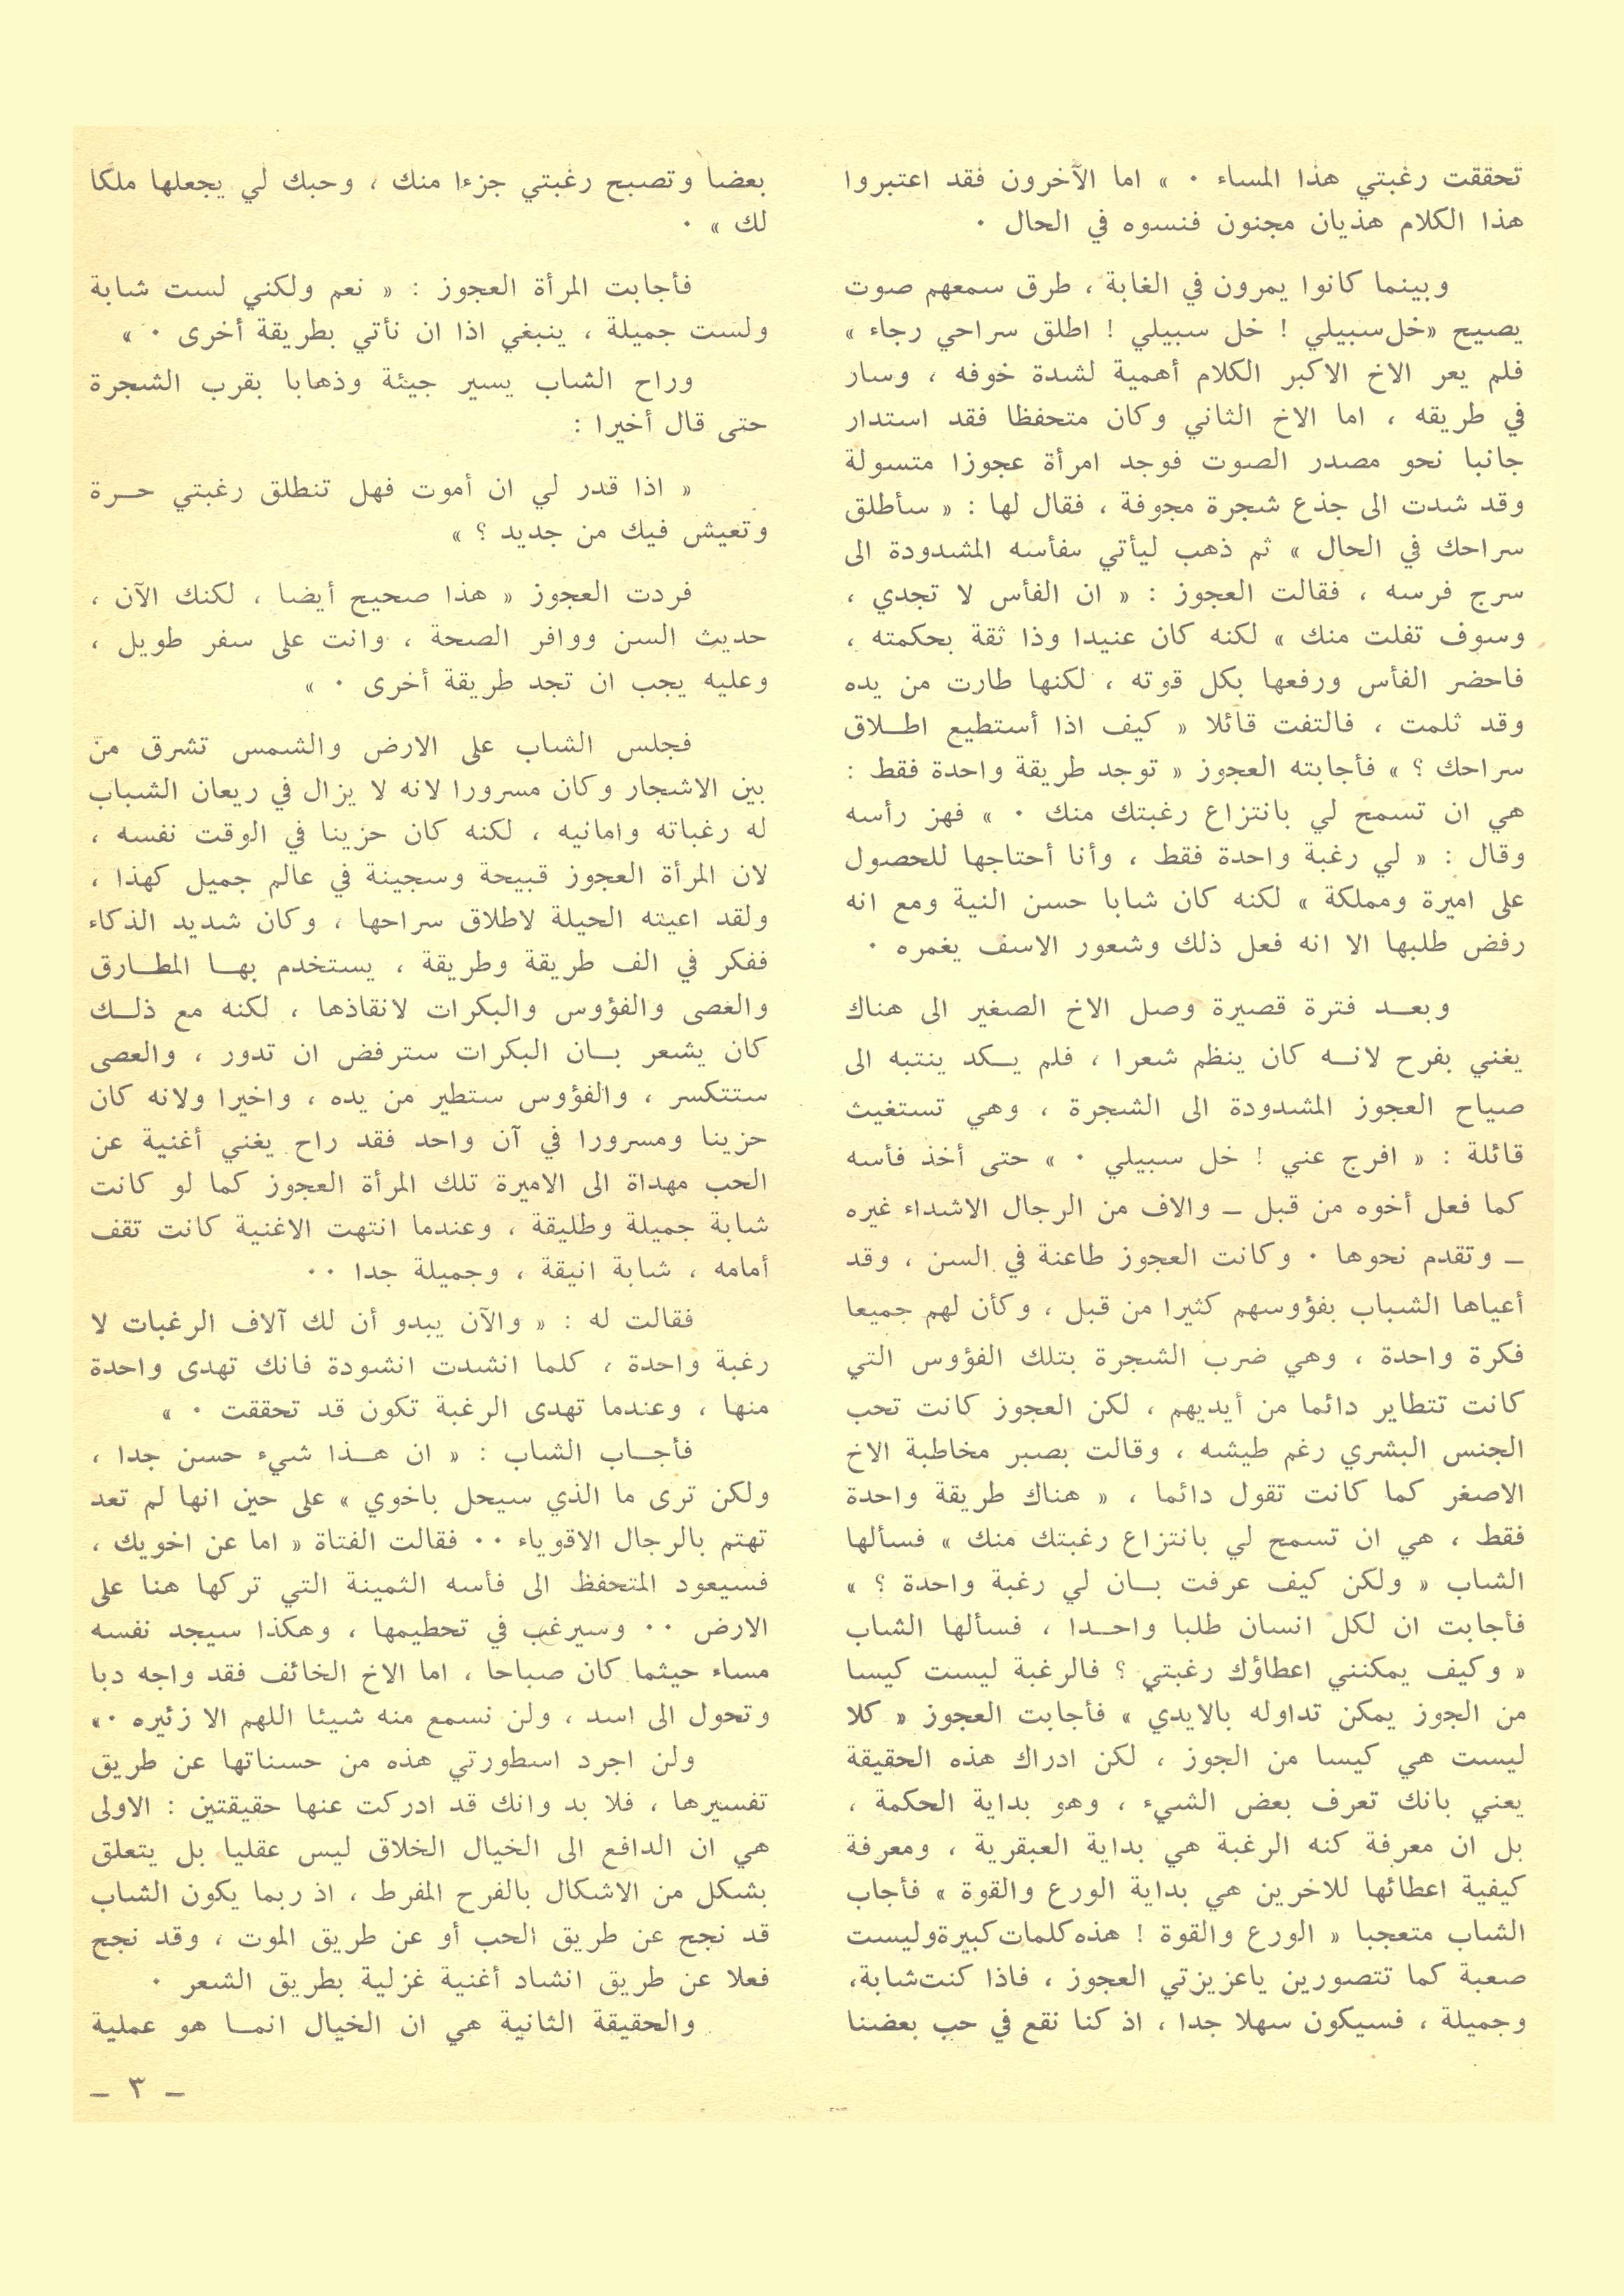 تحققت رغبتي هذا المساء ٠ » اما الآخرون فقد اعتبروا
هذا الكلام هذيان مجنون فنسوه في الحال ٠
وبينما كانوا يمرون في الغابة ، طرق سمعهم صوت
يصيح «خل سبيلي ! خل سبيلي ! اطلق سراحي رجاء »
فلم يعر الاخ الاكبر الكلام أهمية لشدة خوفه ، وسار
في طريقه ، اما الاخ الثاني وكان متحفظا فقد استدار
جانبا نحو مصدر الصوت فوجد امرأة عجوزا متسولة
وقد شدت الى جذع شجرة مجوفة ، فقال لها : « سأطلق
سراحك في الحال » ثم ذهب ليأتي بفأسه المشدودة الى
سرج فرسه ، فقالت العجوز : « ان الفأس لا تجدي ،
وسوف تفلت منك » لكنه كان عنيدا وذا ثقة بحكمته ،
فاحضر الفأس ورفعها بكل قوته ، لكنها طارت من يده
وقد ثلمت ، فالتفت قائلا « كيف اذا أستطيع اطـلاق
سراحك ؟ » فأجابته العجوز « توجد طريقة واحدة فقط :
هي ان تسمح لي بانتزاع رغبتك منك ٠ » فهز رأسه
وقال : « لي رغبة واحدة فقط ، وأنا أحتاجها للحصول
على اميرة ومملكة » لكنه كان شابا حسن النية ومع انه
رفض طلبها الا انه فعل ذلك وشعور الاسف يغمره ٠
وبعـد فترة قصيرة وصل الاخ الصغير الى هناك
يغني بفرح لانـه كان ينظم شعرا ، فلم يـكد ينتبه الى
صياح العجوز المشدودة الى الشجرة ، وهي تستغيث
قائلة : « افرج عني ! خل سبيلي ٠ » حتى أخذ فأسه
كما فعل أخوه من قبل ــ والاف من الرجال الاشداء غيره
ــ وتقدم نحوها ٠ وكانت العجوز طاعنة في السن ، وقد
أعياها الشباب بفؤوسهم كثيرا من قبل ، وكأن لهم جميعا
فكرة واحدة ، وهي ضرب الشجرة بتلك الفؤوس التي
كانت تتطاير دائما من أيديهم ، لكن العجوز كانت تحب
الجنس البشري رغم طيشه ، وقالت بصبر مخاطبة الاخ
الاصغر كما كانت تقول دائما ، « هناك طريقة واحدة
فقط ، هي ان تسمح لي بانتزاع رغبتك منك » فسألها
الشاب « ولكن كيف عرفت بـان لي رغبة واحدة ؟ »
فأجابت ان لكل انسان طلبا واحـدا ، فسألها الشاب
« وكيف يمكنني اعطاؤك رغبتي ؟ فالرغبة ليست كيسا
من الجوز يمكن تداوله بالايدي » فأجابت العجوز « كلا
ليست هي كيسا من الجوز ، لكن ادراك هذه الحقيقة
يعني بانك تعرف بعض الشيء ، وهو بداية الحكمة ،
بل ان معرفة كنه الرغبة هي بداية العبقرية ، ومعرفة
كيفية اعطائها للاخرين هي بداية الورع والقوة » فأجاب
الشاب متعجبا « الورع والقوة ! هذه كلمات كبيرة وليست
صعبة كما تتصورين ياعزيزتي العجوز ، فاذا كنت شابة،
وجميلة ، فسيكون سهلا جدا ، اذ كنا نقع في حب بعضنا
بعضا وتصبح رغبتي جزءا منك ، وحبك لي يجعلها ملكا
لك » ٠
فأجابت المرأة العجوز : « نعم ولكني لست شابة
ولست جميلة ، ينبغي اذا ان نأتي بطريقة أخرى ٠ »
وراح الشاب يسير جيئة وذهابا بقرب الشجرة
حتى قال أخيرا :
« اذا قدر لي ان أموت فهل تنطلق رغبتي حـرة
وتعيش فيك من جديد ؟ »
فردت العجوز « هذا صحيح أيضا ، لكنك الآن ،
حديث السن ووافر الصحة ، وانت على سفر طويل ،
وعليه يجب ان تجد طريقة أخرى ٠ »
فجلس الشاب على الارض والشمس تشرق من
بين الاشجار وكان مسرورا لانه لا يزال في ريعان الشباب
له رغباته وامانيه ، لكنه كان حزينا في الوقت نفسه ،
لان المرأة العجوز قبيحة وسجينة في عالم جميل كهذا ،
ولقد اعيته الحيلة لاطلاق سراحها ، وكان شديد الذكاء
ففكر في الف طريقة وطريقة ، يستخدم بهـا المطـارق
والعصى والفؤوس والبكرات لانقاذها ، لكنه مع ذلـك
كان يشعر بـان البكرات سترفض ان تدور ، والعصى
ستتكسر ، والفؤوس ستطير من يده ، واخيرا ولانه كان
حزينا ومسرورا في آن واحد فقد راح يغني أغنية عن
الحب مهداة الى الاميرة تلك المرأة العجوز كما لو كانت
شابة جميلة وطليقة ، وعندما انتهت الاغنية كانت تقف
أمامه ، شابة انيقة ، وجميلة جدا ٠٠
فقالت له : « والآن يبدو أن لك آلاف الرغبات لا
رغبة واحدة ، كلما انشدت انشودة فانك تهدى واحدة
منها ، وعندما تهدى الرغبة تكون قد تحققت ٠ »
فأجـاب الشاب : « ان هـذا شيء حسن جدا ،
ولكن ترى ما الذي سيحل باخوي » على حين انها لم تعد
تهتم بالرجال الاقوياء ٠٠ فقالت الفتاة « اما عن اخويك ،
فسيعود المتحفظ الى فأسه الثمينة التي تركها هنا على
الارض ٠٠ وسيرغب في تحطيمها ، وهكذا سيجد نفسه
مساء حيثما كان صباحا ، اما الاخ الخائف فقد واجه دبا
وتحول الى اسد ، ولن نسمع منه شيئا اللهم الا زئيره ٠»
ولن اجرد اسطورتي هذه من حسناتها عن طريق
تفسيرها ، فلا بد وانك قد ادركت عنها حقيقتين : الاولى
هي ان الدافع الى الخيال الخلاق ليس عقليا بل يتعلق
بشكل من الاشكال بالفرح المفرط ، اذ ربما يكون الشاب
قد نجح عن طريق الحب أو عن طريق الموت ، وقد نجح
فعلا عن طريق انشاد أغنية غزلية بطريق الشعر ٠
والحقيقة الثانية هي ان الخيال انمـا هو عملية
ــ ٣ ــ